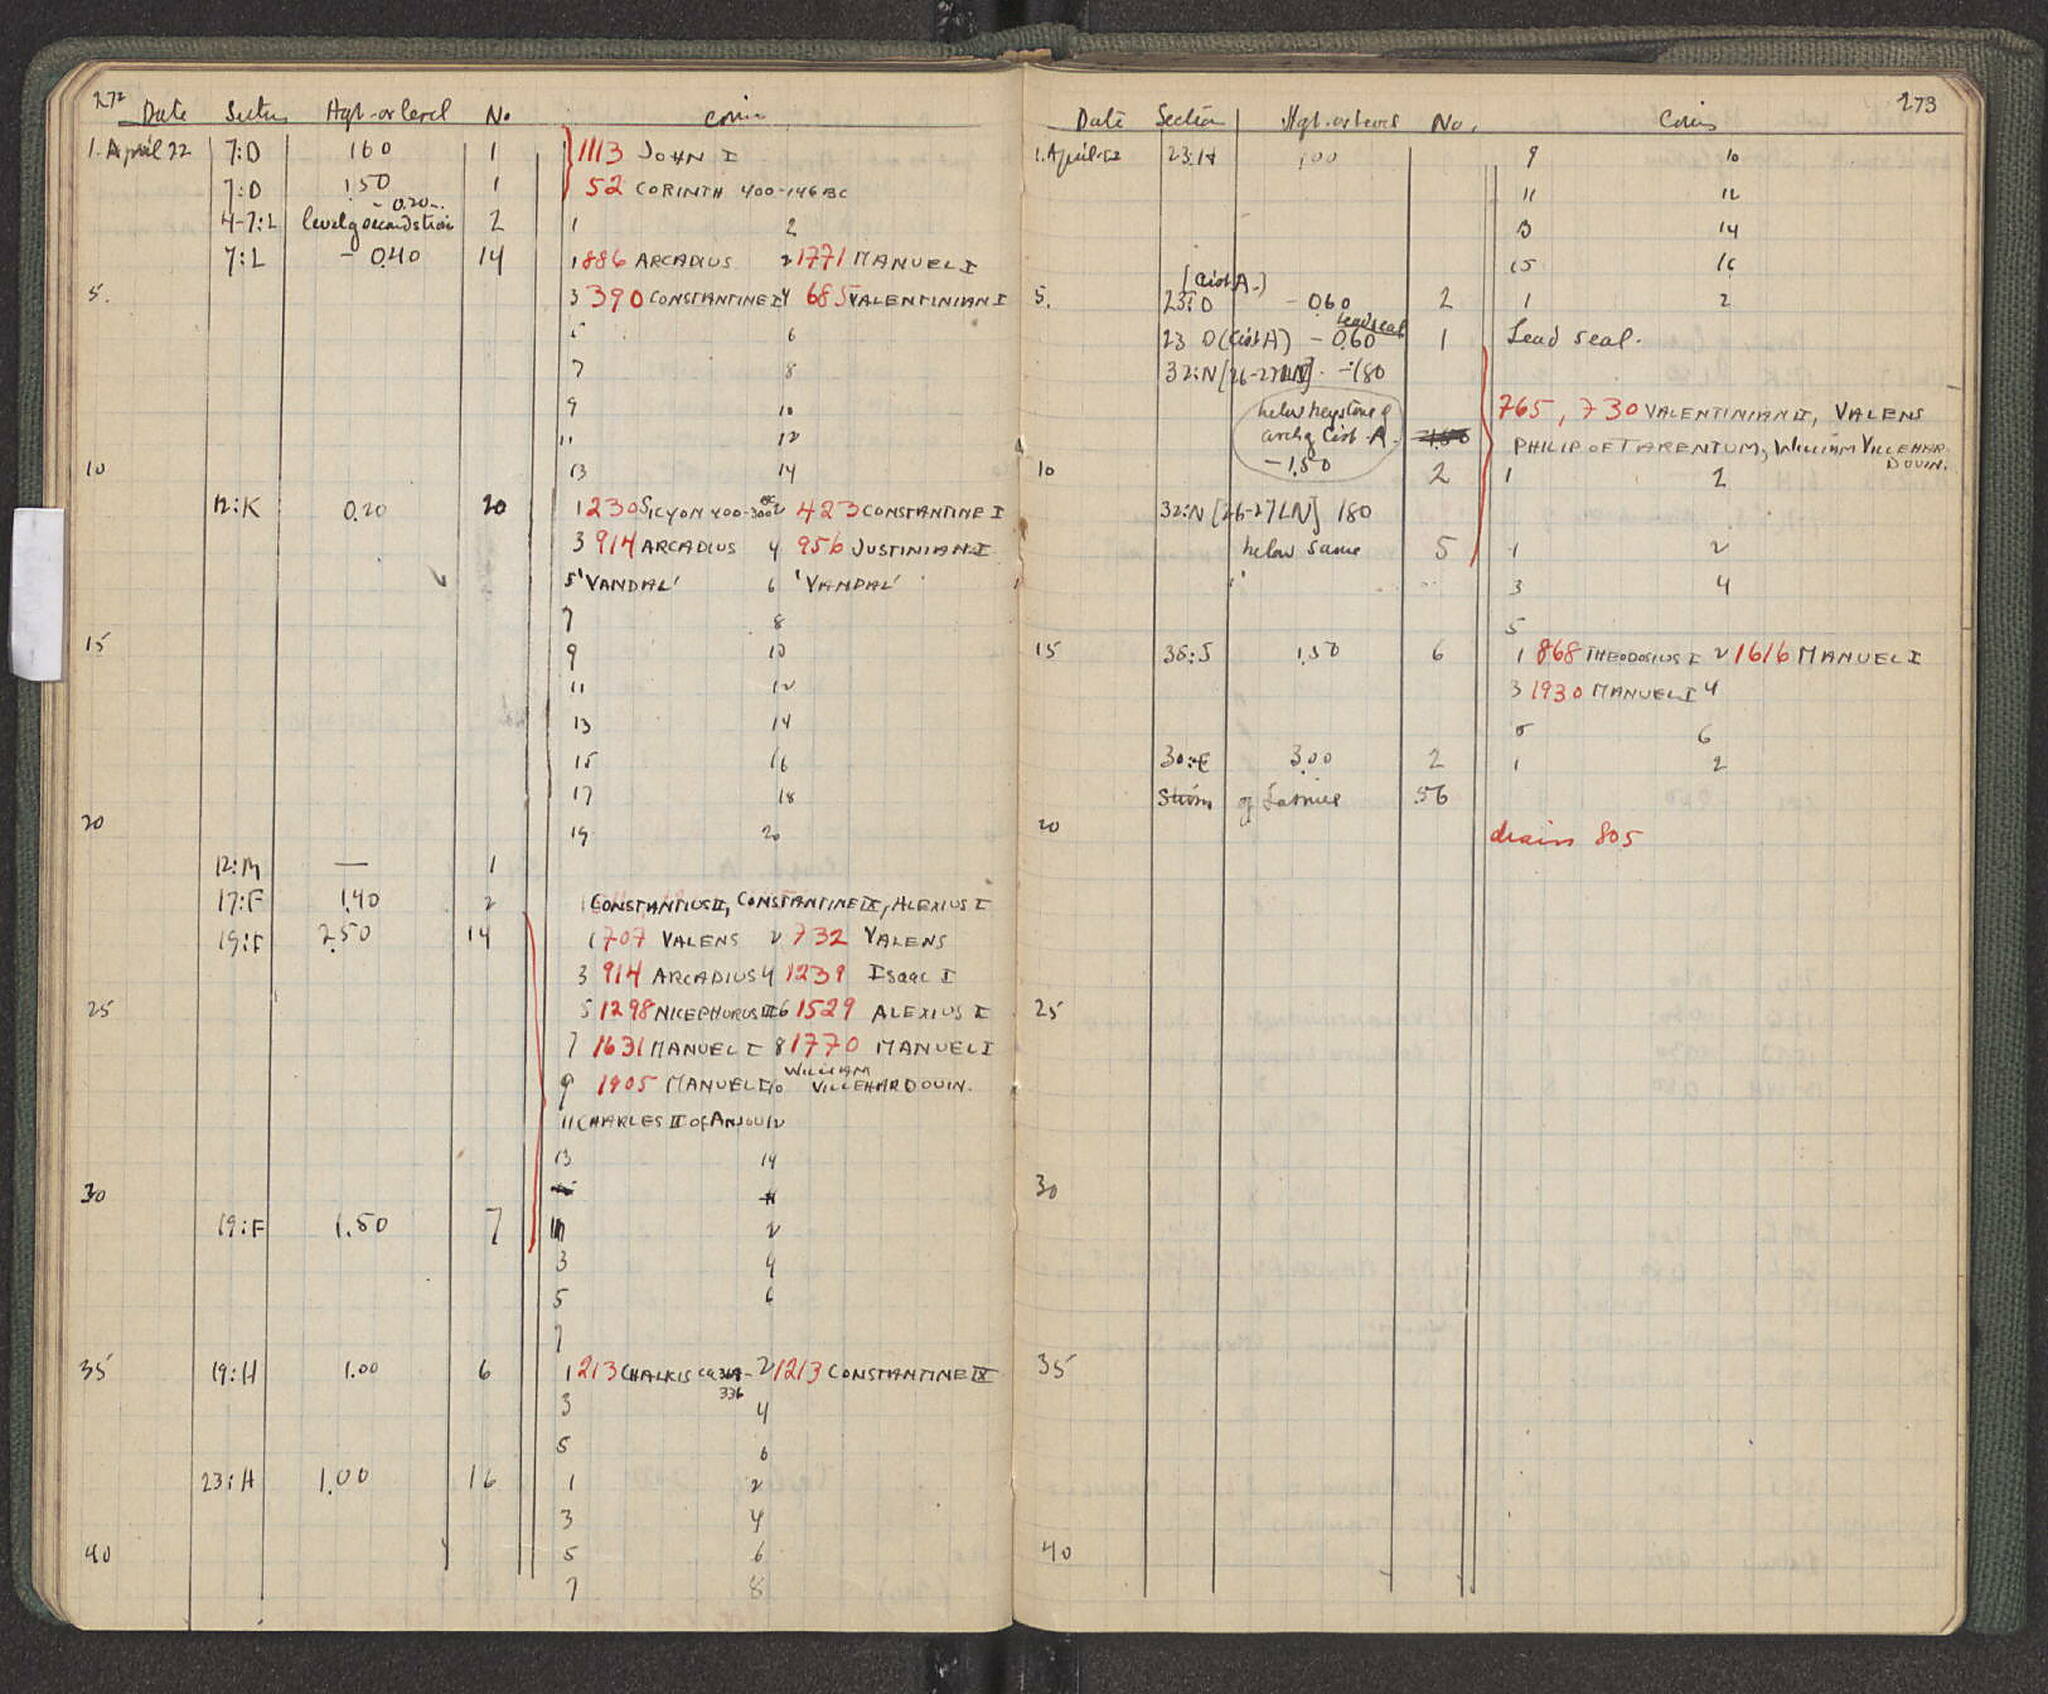 272
Date Section Hgt. or level No. Coins
1. April 22 7:D 1.60 1 1113 JOHN I
7:D 1.50 1 52 CORINTH 400-146 BC
- 0.20
4-7:L level of second 2 1 2
7:L - 0.40 14 1 886 ARCADIUS 2 1771 MANUEL I
5. 3 390 CONSTANTINE I 4 685 VALENTINIAN I
5 6
7 8
9 10
11 12
10 13 14
12:K 0.20 20 1 230 SICYON 400-300 BC 2 423 CONSTANTINE I
3 914 ARCADIUS 4 956 JUSTINIAN I
5 'VANDAL' 6 'VANDAL'
7 8
15 9 10
11 12
13 14
15 16
17 18
20 19 20
12:M — 1
17:F 1.40 2 CONSTANTIUS II, CONSTANTINE IX, ALEXIUS I
19:F 2.50 14 1 707 VALENS 2 732 VALENS
3 914 ARCADIUS 4 1239 ISaac I
25 5 1298 NICEPHORUS III 6 1529 ALEXIUS I
7 1631 MANUEL I 8 1770 MANUEL I
9 1905 MANUEL I 10 WILLIAM VILLEHARDOUIN.
11 CHARLES II of ANJOU 12
13 14
30
19:F 1.50 7 1 2
3 4
5 6
7
35 19:H 1.00 6 1 213 CHALKIS ca 369-336 2 1213 CONSTANTINE IX
3 4
5 6
23:H 1.00 16 1 2
3 4
40 5 6
7 8
273
Date Section Hgt. or level No. Coins
1. April 22 23:H 1.00 9 10
11 12
13 14
15 16
[Cist A.]
5. 23:D - 0.60 2 1 2
lead seal
23 D (Cist A) - 0.60 1 Lead seal.
32:N [26-27 LN] - 1.80
below keystone of 765, 730 VALENTINIAN II, VALENS
arch of Cist. A. PHILIP OF TARENTUM, WILLIAM VILLEHARDOUIN.
10 - 1.50 2 1 2
32:N [26-27 LN] 1.80
below same 5 1 2
3 4
5
15 36:J 1.50 6 1 868 THEODOSIUS I 2 1616 MANUEL I
3 1930 MANUEL I 4
5 6
30:E 3.00 2 1 2
of 56
20 drains 805
25
30
35
40